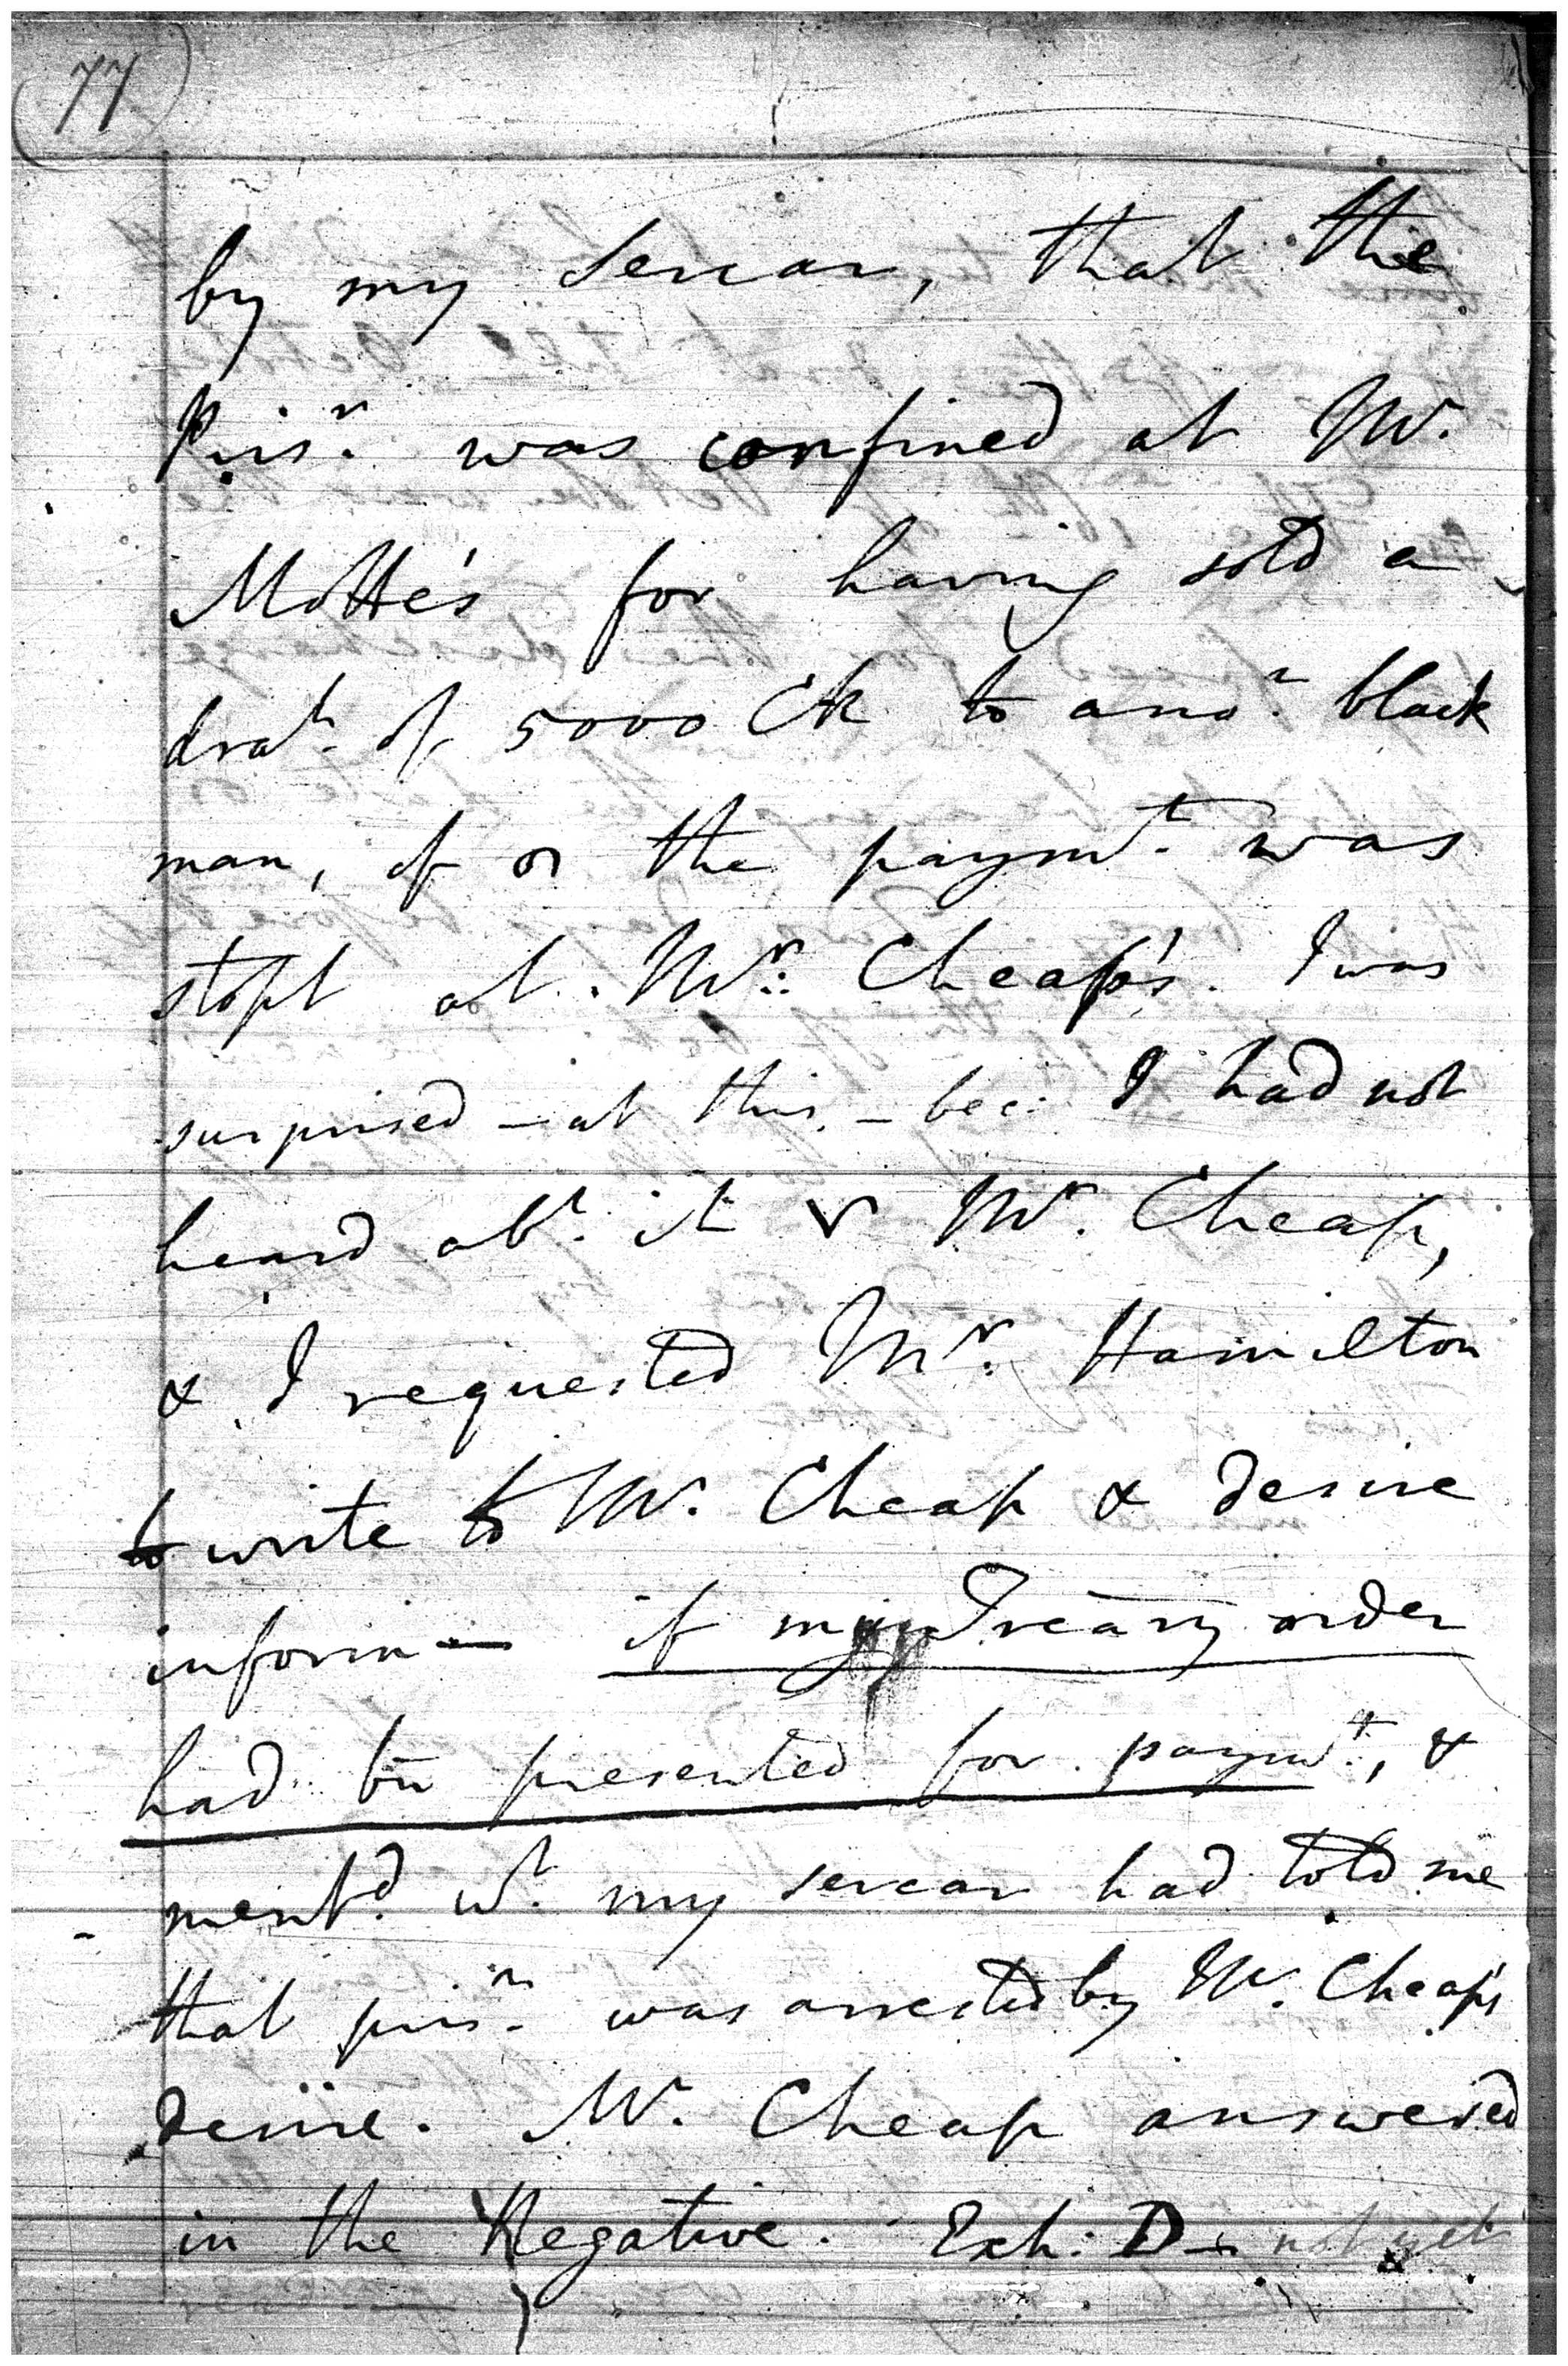 77
by my sercar, that the
Pris.r was confined at Mr.
Motte's for having sold a
dra.t of 5000 CR to ano.r black
man, & on the paym.t was
stopt at Mr. Cheap's. I was
surprised - at this - bec: I had not
heard ab.t it Mr. Cheap,
& I requested Mr. Hamilton
to write to Mr. Cheap & desire
inform — if my Treāry order
had bn presented for paym.t, &
ment.d w.t my sercar had told me
that pris.r was arrested by Mr. Cheap's
desire. Mr. Cheap answered
in the Negative. Exh: D - not yet